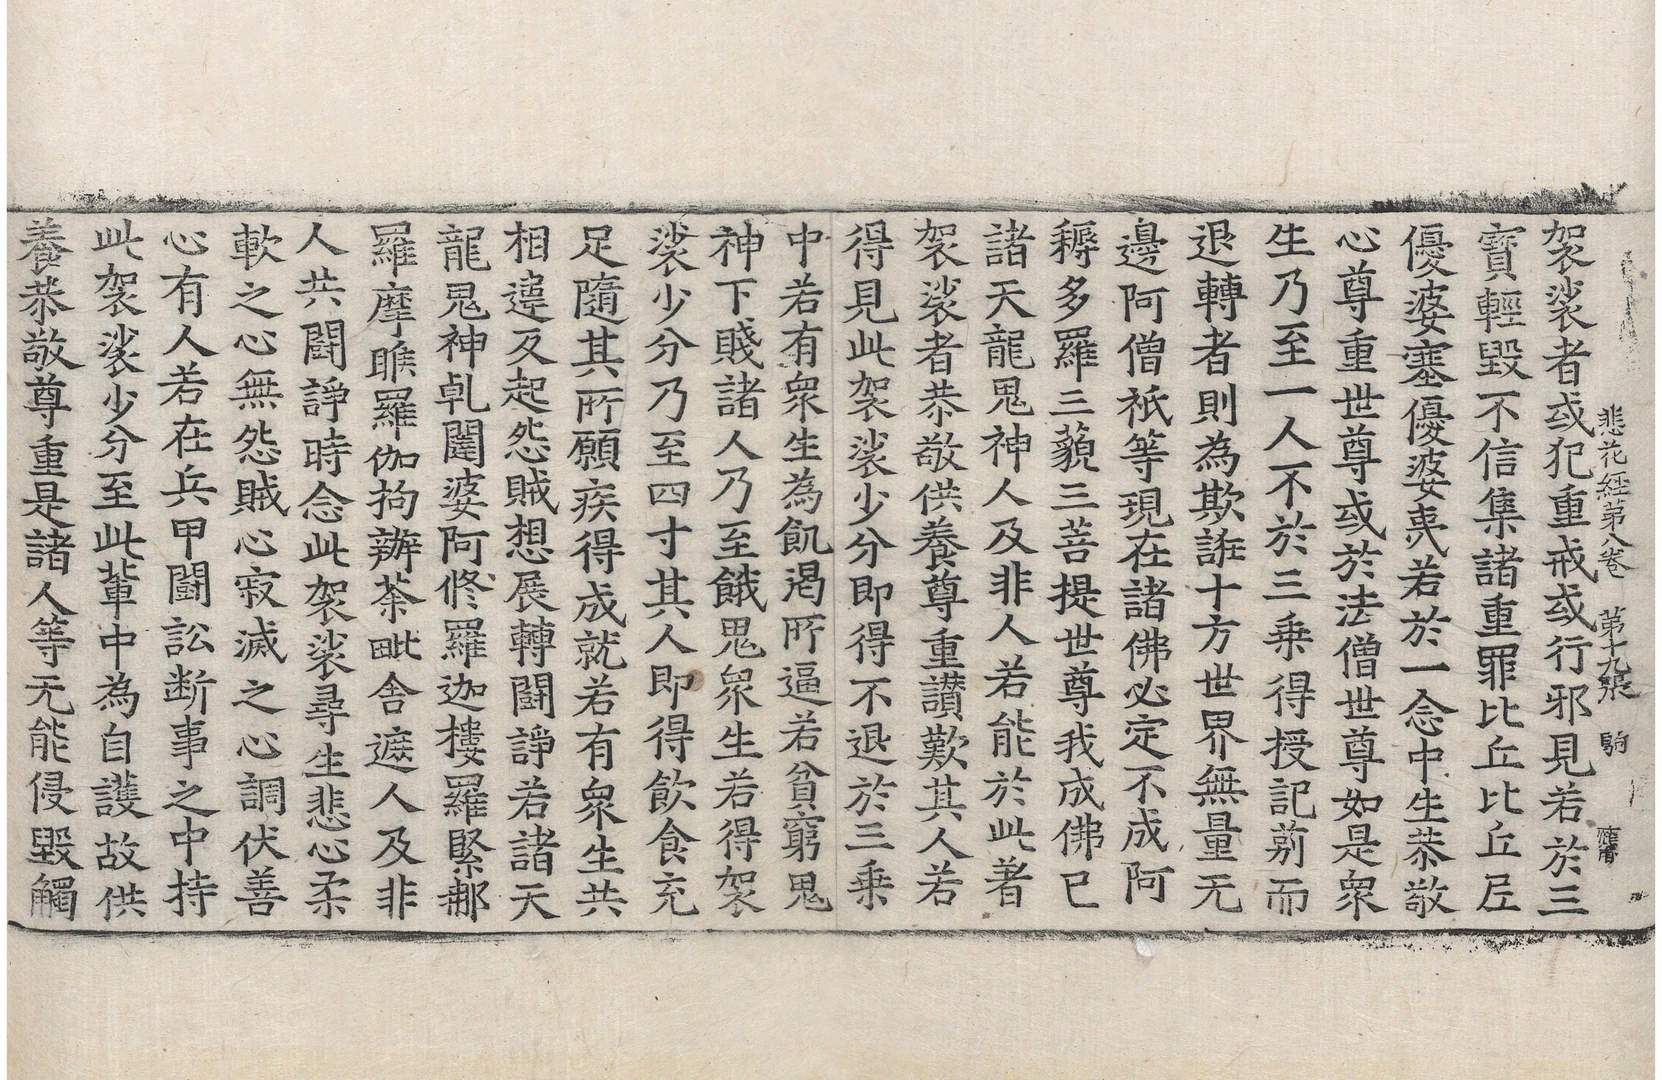 悲花經第八卷 第十九張 駒
袈裟者或犯重戒或行邪見若於三
寶輕毀不信集諸重罪比丘比丘尼
優婆塞優婆夷若於一念中生恭敬
心尊重世尊或於法僧世尊如是衆
生乃至一人不於三乘得授記莂而
退轉者則為欺誑十方世界無量无
邊阿僧祇等現在諸佛必定不成阿
耨多羅三藐三菩提世尊我成佛已
諸天龍鬼神人及非人若能於此著
袈裟者恭敬供養尊重讃歎其人若
得見此袈裟少分即得不退於三乘
中若有衆生為飢渇所逼若貧窮鬼
神下賤諸人乃至餓鬼衆生若得袈
裟少分乃至四寸其人即得飲食充
足隨其所願疾得成就若有衆生共
相違反起怨賊想展轉鬪諍若諸天
龍鬼神乹闥婆阿修羅迦樓羅緊那
羅摩睺羅伽拘辦荼毗舎遮人及非
人共鬪諍時念此袈裟尋生悲心柔
軟之心無怨賊心寂滅之心調伏善
心有人若在兵甲鬪訟断事之中持
此袈裟少分至此輩中為自護故供
養恭敬尊重是諸人等无能侵毀觸